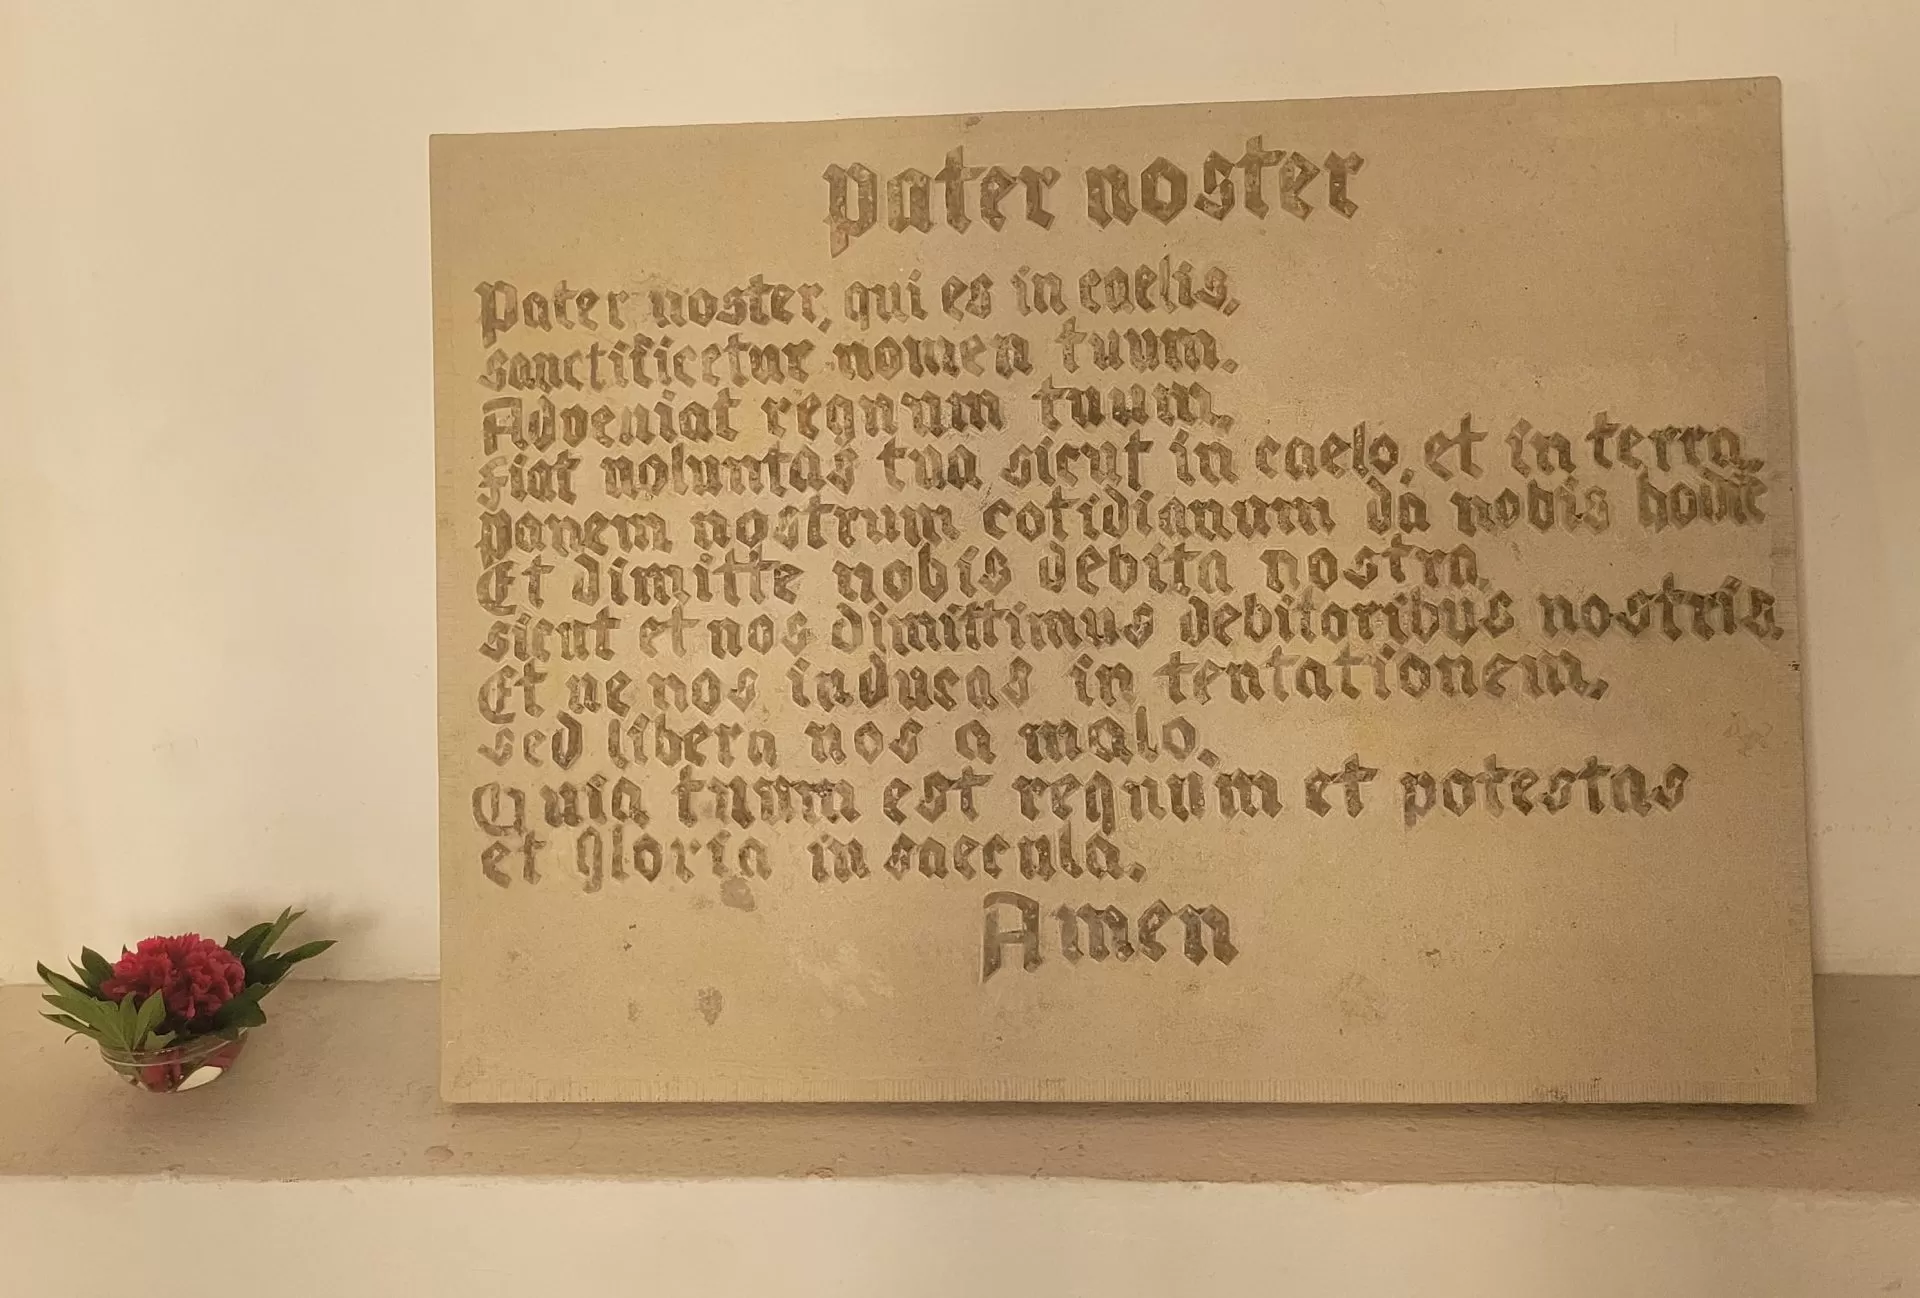 pater noster
Pater noster, qui es in caelis,
sanctificetur nomen tuum.
Adveniat regnum tuum.
Fiat voluntas tua sicut in caelo, et in terra.
panem nostrum cotidianum da nobis hodie
Et dimitte nobis debita nostra,
sicut et nos dimittimus debitoribus nostris.
Et ne nos inducas in tentationem,
sed libera nos a malo.
Quia tuum est regnum et potestas
et gloria in saecula.
Amen